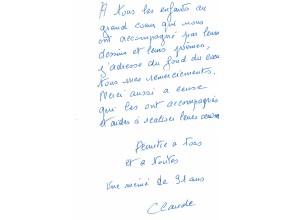 A tous les enfants au
grand coeur qui nous
ont accompagné par leurs
dessins et leurs poèmes,
j'adresse du fond du coeur
tous mes remerciements.
Merci aussi a ceux
qui les ont accompagnés
et aidés à réaliser leurs
a tous
et a toutes
Une mémé de 91 ans
Claude